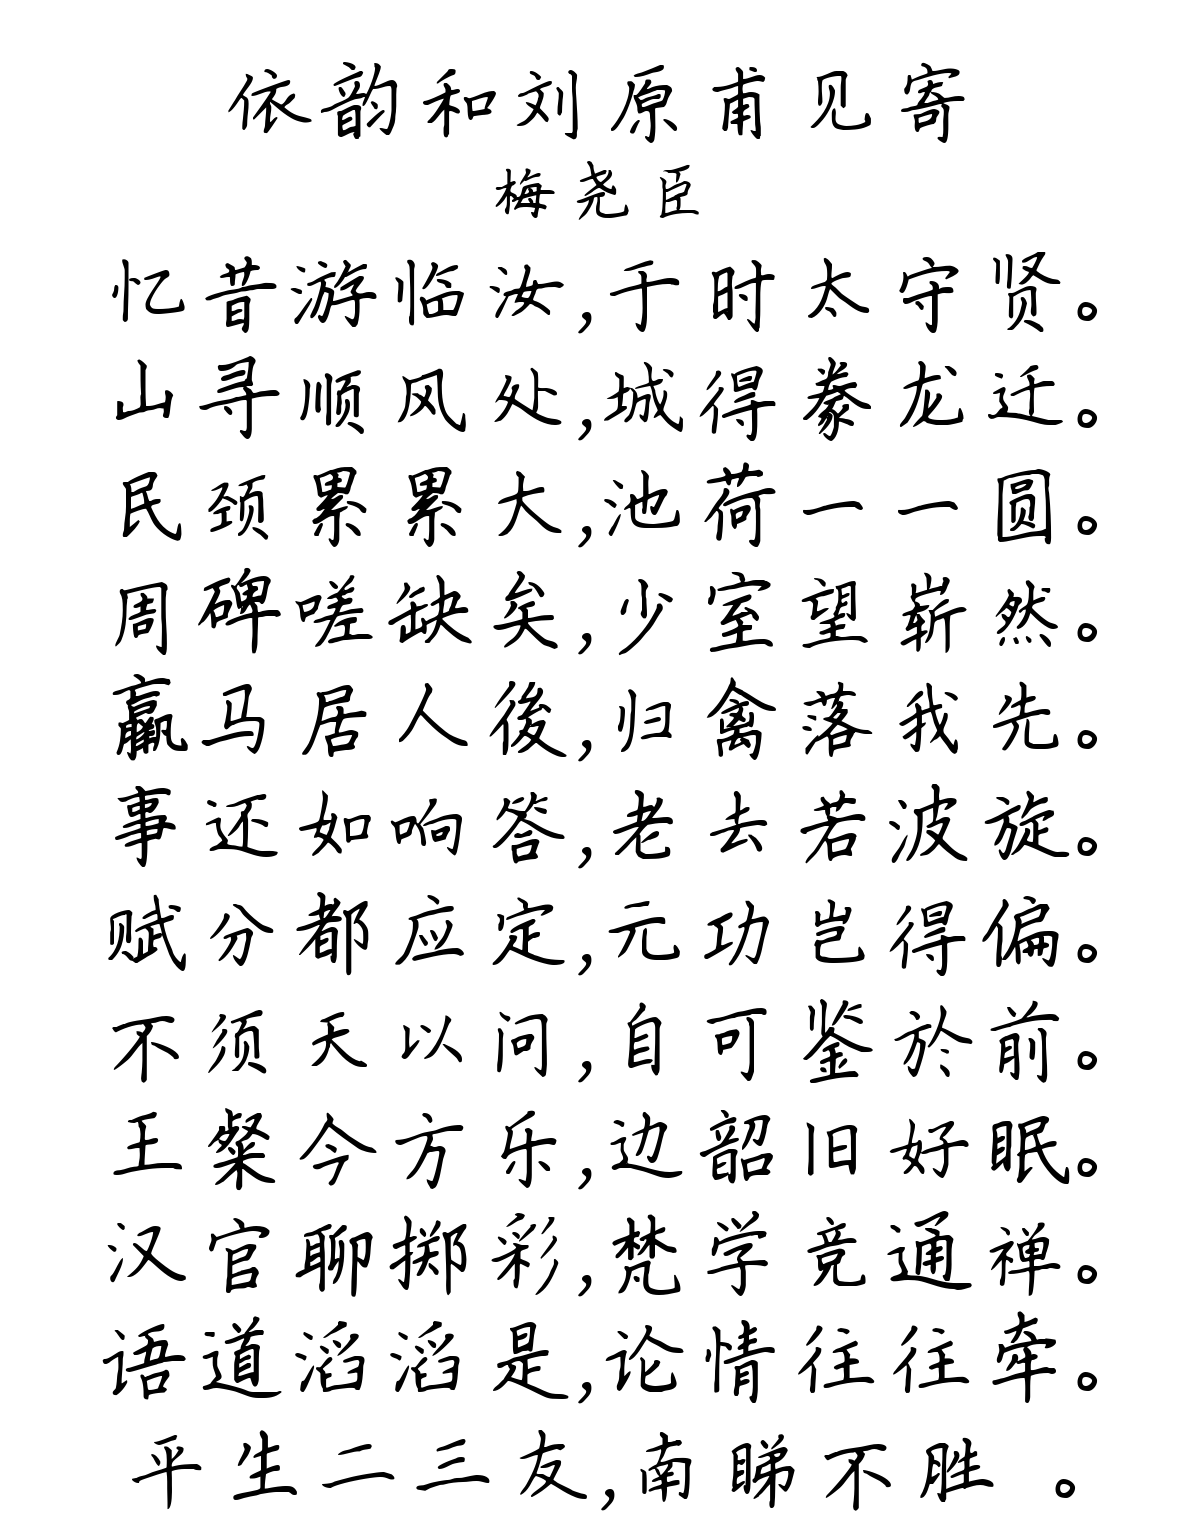 依韵和刘原甫见寄
梅尧臣
忆昔游临汝,于时太守贤。
山寻顺风处,城得豢龙迁。
民颈累累大,池荷一一圆。
周碑嗟缺矣,少室望崭然。
羸马居人後,归禽落我先。
事还如响答,老去若波旋。
赋分都应定,元功岂得偏。
不须天以问,自可鉴於前。
王粲今方乐,边韶旧好眠。
汉官聊掷彩,梵学竞通禅。
语道滔滔是,论情往往牵。
平生二三友,南睇不胜 。